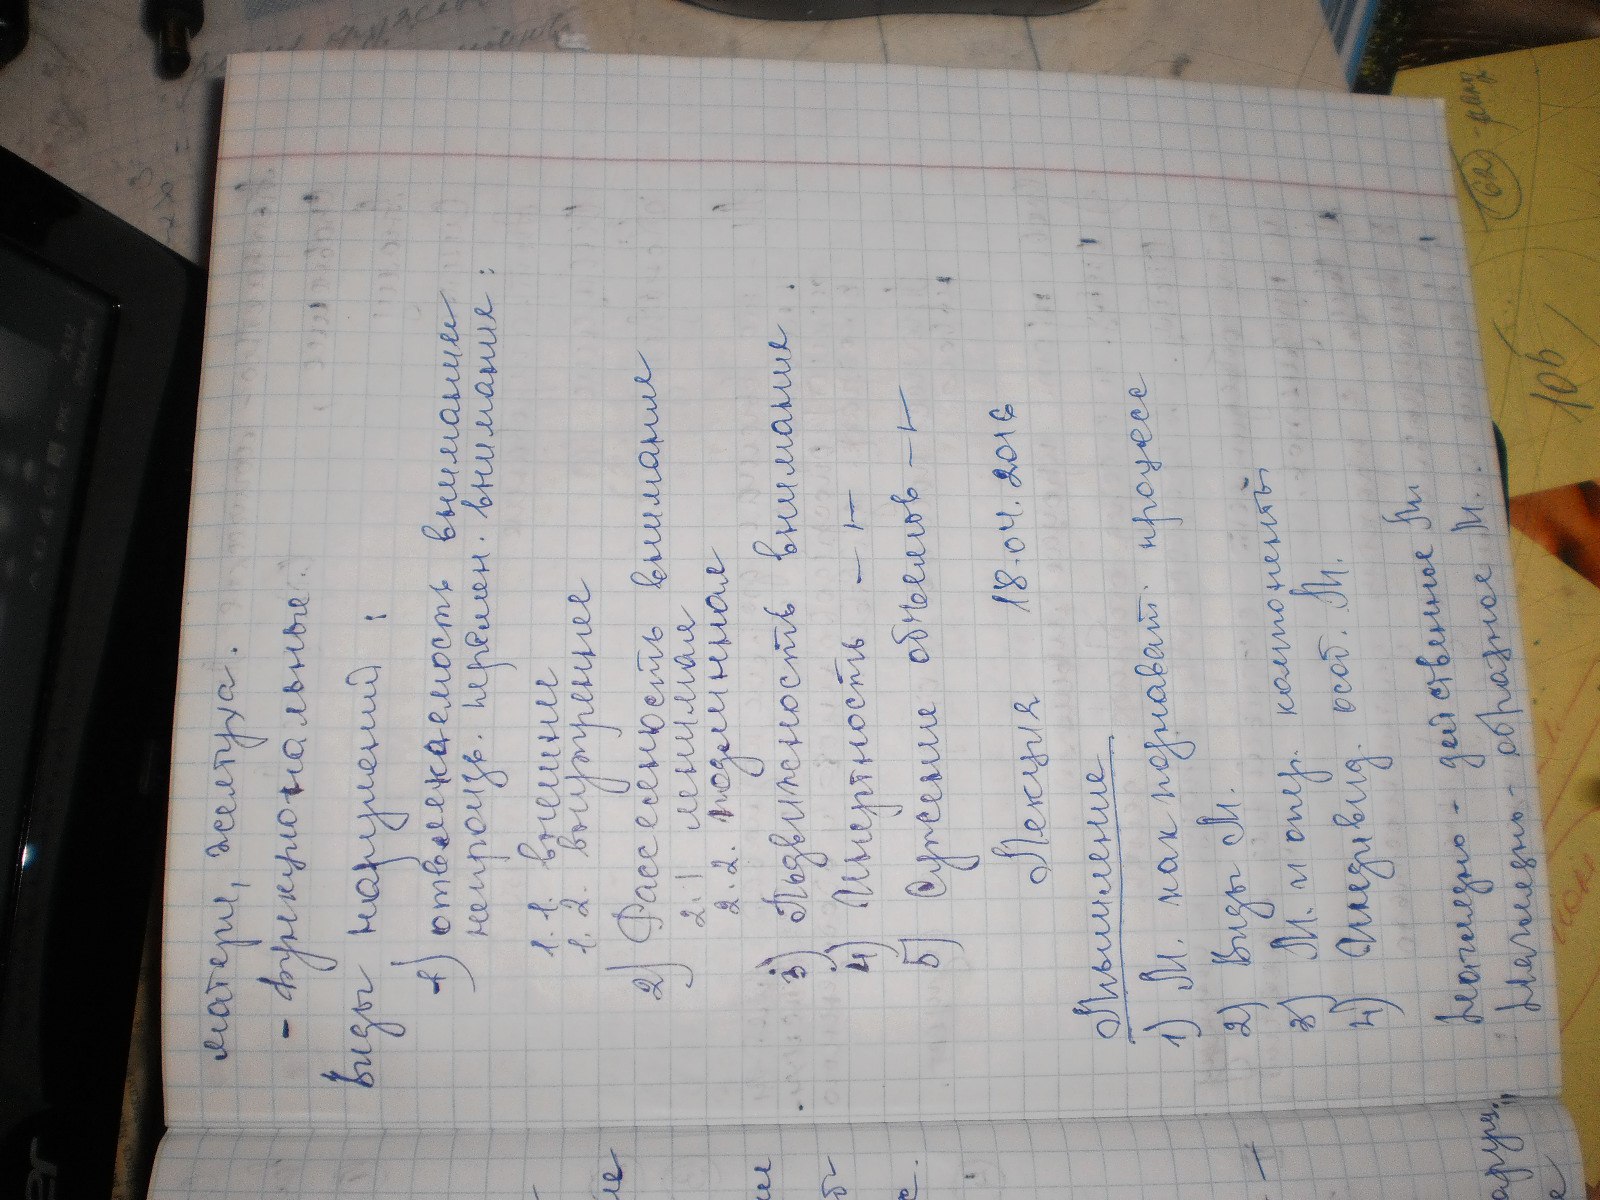 матери, желтуха.
- функциональные.
Виды нарушений:
1) отвлекаемость внимание
непроизв. перемен. внимание:
1.1. внешние
1.2. внутренние
2) Рассеенность внимания
2.1 мнимая
2.2. подлинная
3) Подвижность внимания.
4) Инертность —⊢
5) Сужение объемов —⊢
Лекция 18.04.2016
Мышление
1) М. как познават. процесс
2) Виды М.
3) М. и опер. компоненты
4) Индивид. особ. М.
Наглядно - действенное М.
Наглядно - образное М.
10б
62